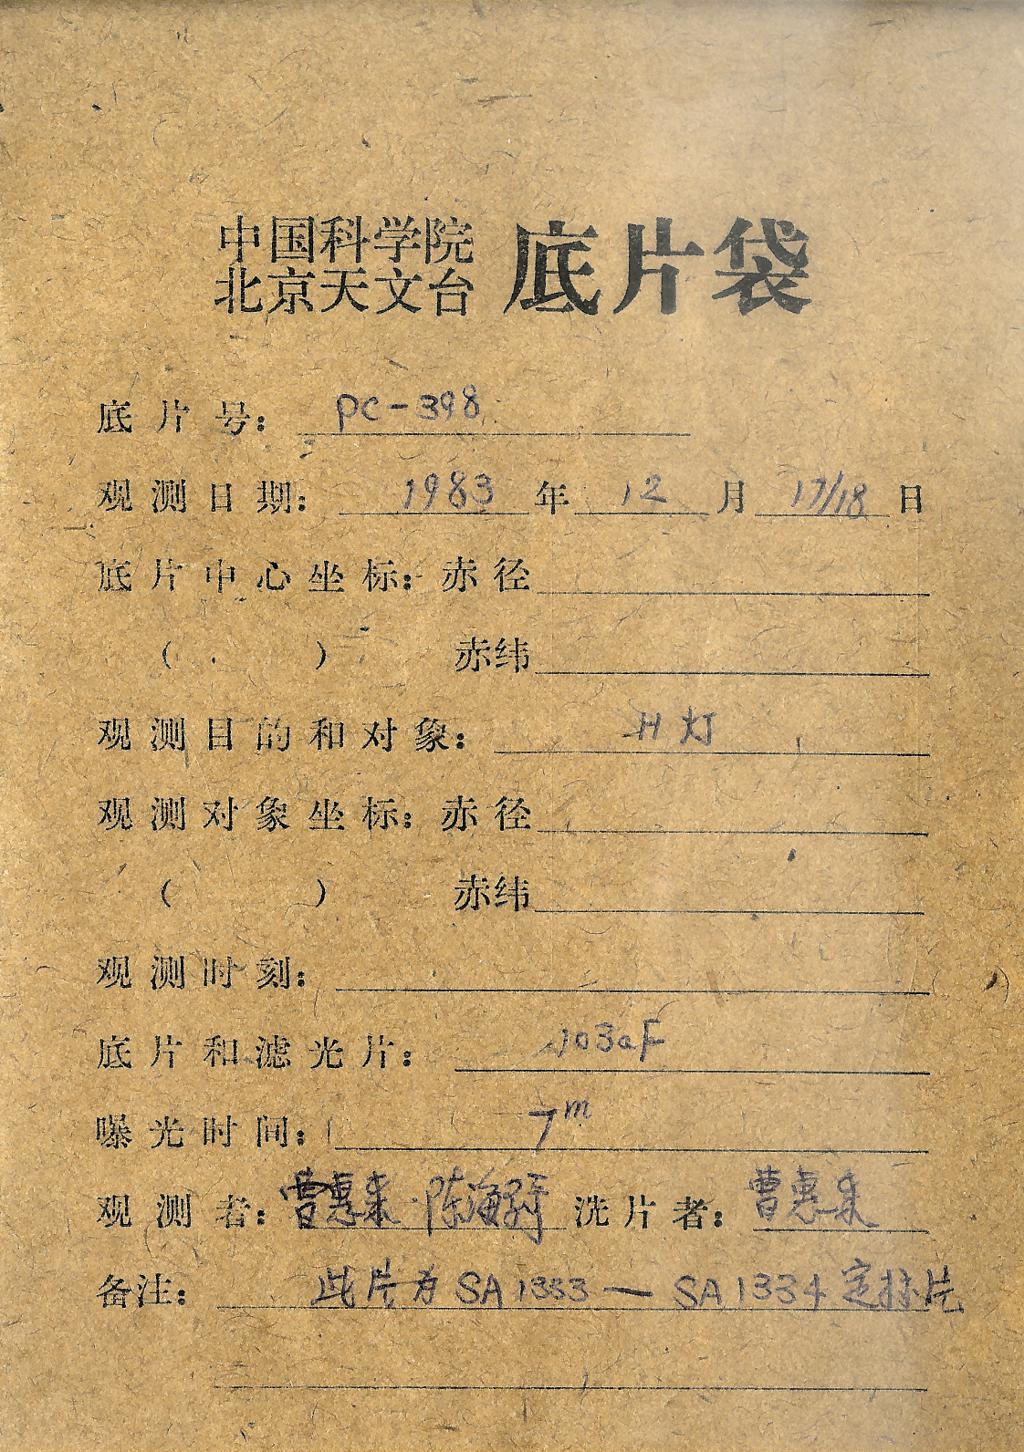 中国科学院
北京天文台 底片袋
底片号: PC-398
观测日期: 1983年12月17/18日
底片中心坐标: 赤径
( ) 赤纬
观测目的和对象: H灯
观测对象坐标: 赤径
( ) 赤纬
观测时刻:
底片和滤光片: 103aF
曝光时间: 7m
观测者: 曹惠来·陈海 洗片者: 曹惠来
备注: 此片为SA1333—SA1334定标片